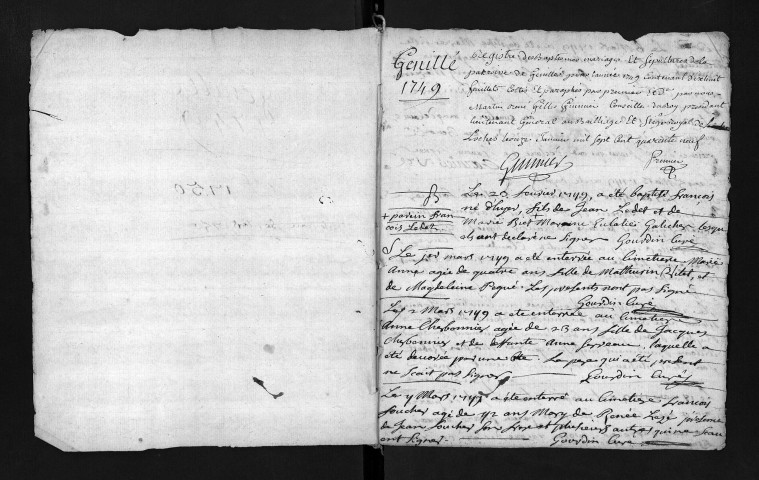 Genillé
1749
Registre des Baptesmes mariages Et Sepultures de la
paroisse de Genillé pour l'année 1749 contenant dix huit
feuillets cottés et paraphés par premier et d. par nous
Martin René Gilles Conseiller du Roy president
Lieutenant General au Bailliage Et Siege Royal de
Loches le onze Janvier mil sept Cent quarente neuf
B
+ parein Fran
cois Ledet
Le 20 fevrier 1749, a été baptisé Francois
né d'hyer, fils de Jean Ledet et de
Marie Biet + Maraine Eulalie Galicher lesqu
els ont declaré ne Signer Gourdin Curé
S Le 1er mars 1749 a été enterrée au Cimetiere Marie
Anne agée de quatre ans fille de Mathurin et
de Magdeleine Pequé. Les presents n'ont pas Signé
Gourdin Curé
Le 2 Mars 1749 a été enterrée au Cimetiere
Anne Charbonnier agée de 23 ans fille de Jacques
Charbonnier et de deffunte Anne laquelle a
été devorée par une Bete. Le pere qui a été present
ne Scait pas Signer Gourdin Curé
Le 9 Mars 1749 a été enterré au Cimetiere Francois
Souchet agé de 42 ans Mary de Renée presence
de Jean Souchet Son frere et plusieurs autres qui ne Scav
ent Signer. Gourdin Curé
1750